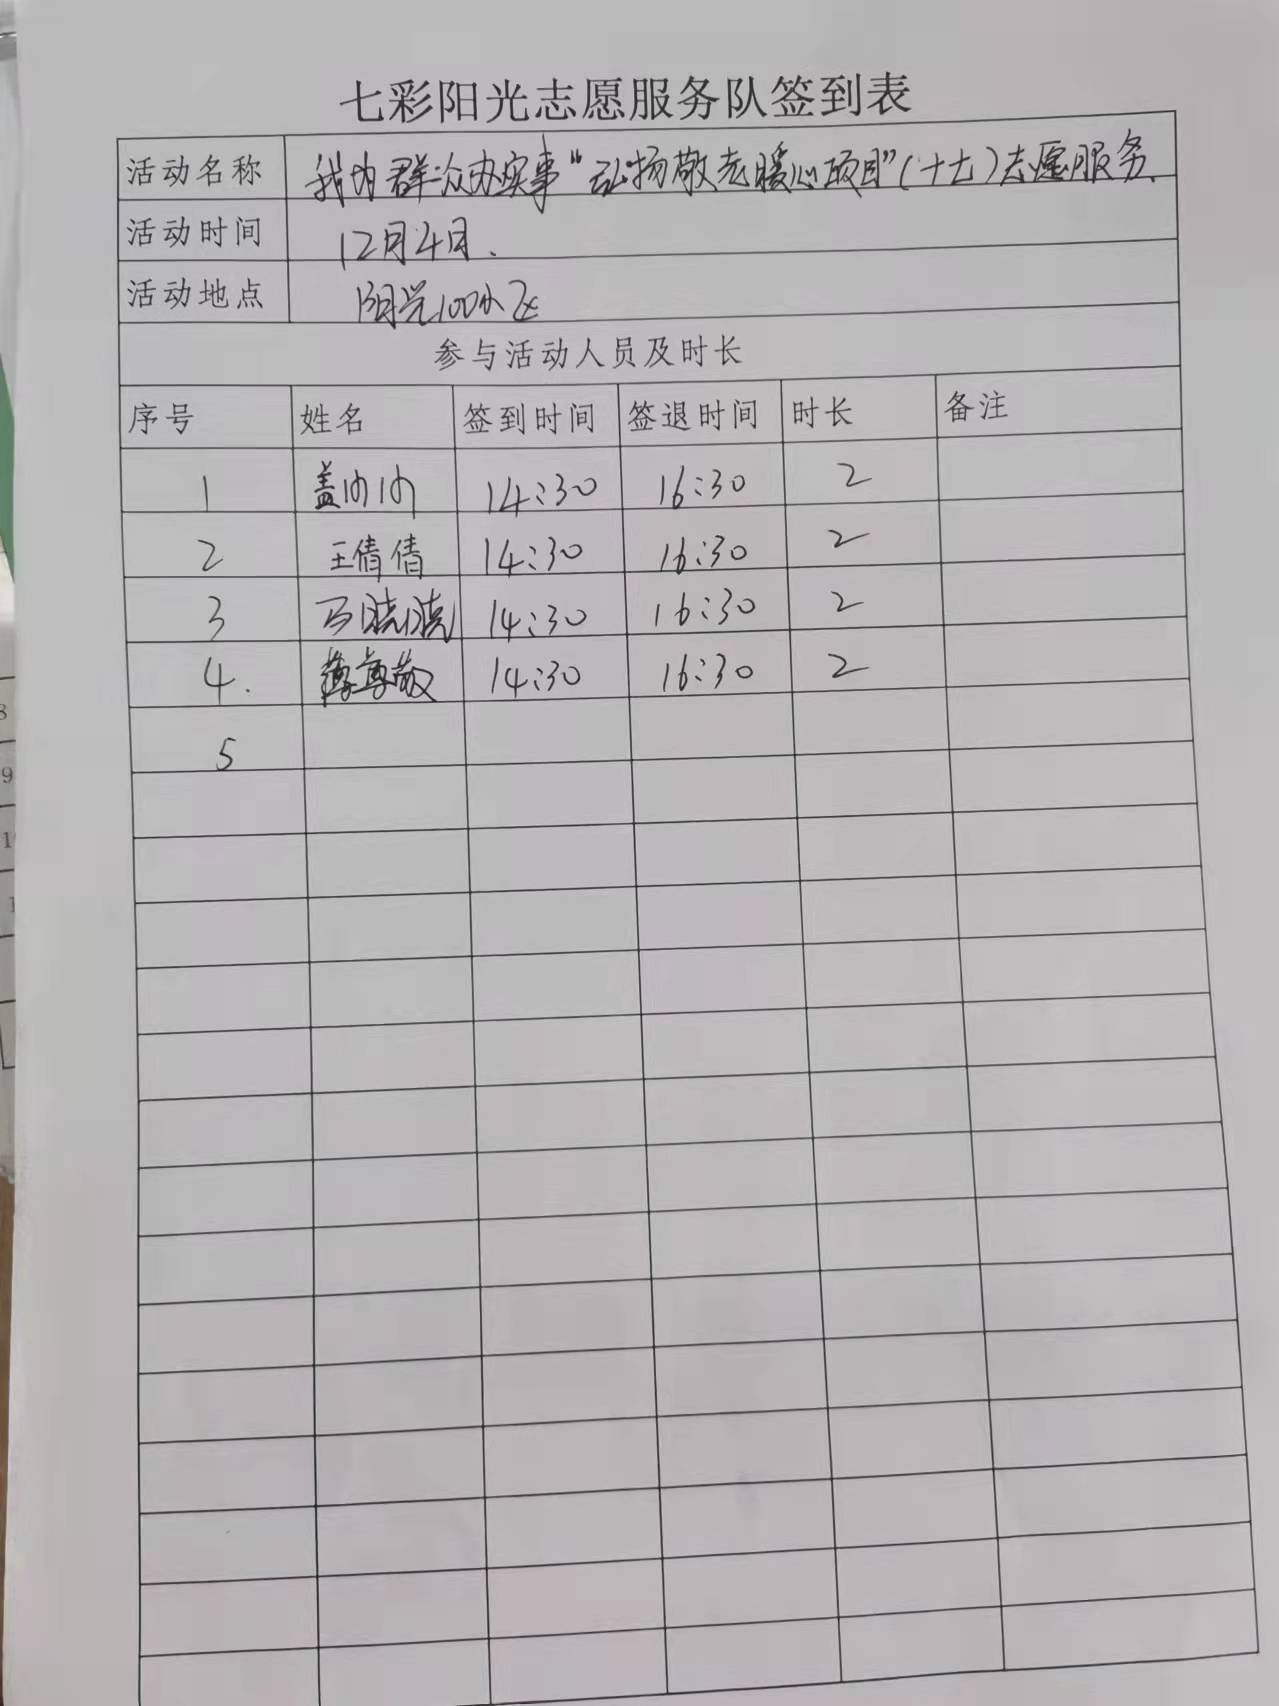 七彩阳光志愿服务队签到表
活动名称 我为群众办实事“弘扬敬老暖心项目”(十七)志愿服务.
活动时间 12月4日.
活动地点 阳光100小区
参与活动人员及时长
序号 姓名 签到时间 签退时间 时长 备注
1 盖 14:30 16:30 2
2 王倩倩 14:30 16:30 2
3 晓晓 14:30 16:30 2
4. 14:30 16:30 2
5
8
9